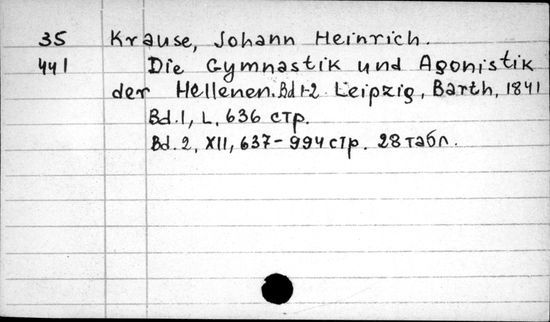 35 Krause, Johann Heinrich.
441 Die Gymnastik und Agonistik
der Hellenen. Bd 1-2 Leipzig, Barth, 1841
Bd. 1, L, 636 стр.
Bd. 2, XII, 637-994 стр. 28 табл.